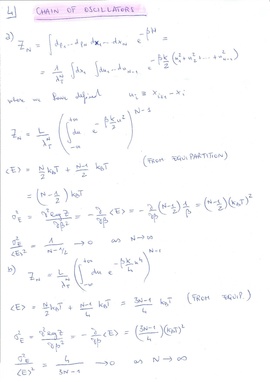 4] CHAIN OF OSCILLATORS
a) Z_N = ∫ dp_1 … dp_N dx_1 … dx_N e^{-βH} =
= 1/λ_T^N ∫ dx_1 ∫ du_1 … du_{N-1} e^{-βk/2 (u_1^2 + u_2^2 + … + u_{N-1}^2)}
where we have defined u_i ≡ x_{i+1} - x_i
Z_N = L/λ_T^N ( ∫_{-∞}^{+∞} du e^{-βk/2 u^2} )^{N-1}
⟨E⟩ = N/2 k_BT + (N-1)/2 k_BT (FROM EQUIPARTITION)
= (N-1/2) k_BT
σ_E^2 = ∂^2 log Z/∂β^2 = -∂/∂β ⟨E⟩ = -∂/∂β (N-1/2) 1/β = (N-1/2)(k_BT)^2
σ_E^2/⟨E⟩^2 = 1/(N-1/2) → 0 as N→∞
b) Z_N = L/λ_T^N ( ∫_{-∞}^{+∞} du e^{-βk/4 u^4} )^{N-1}
⟨E⟩ = N/2 k_BT + (N-1)/4 k_BT = (3N-1)/4 k_BT (FROM EQUIP.)
σ_E^2 = ∂^2 log Z/∂β^2 = -∂/∂β ⟨E⟩ = ((3N-1)/4)(k_BT)^2
σ_E^2/⟨E⟩^2 = 4/(3N-1) → 0 as N→∞